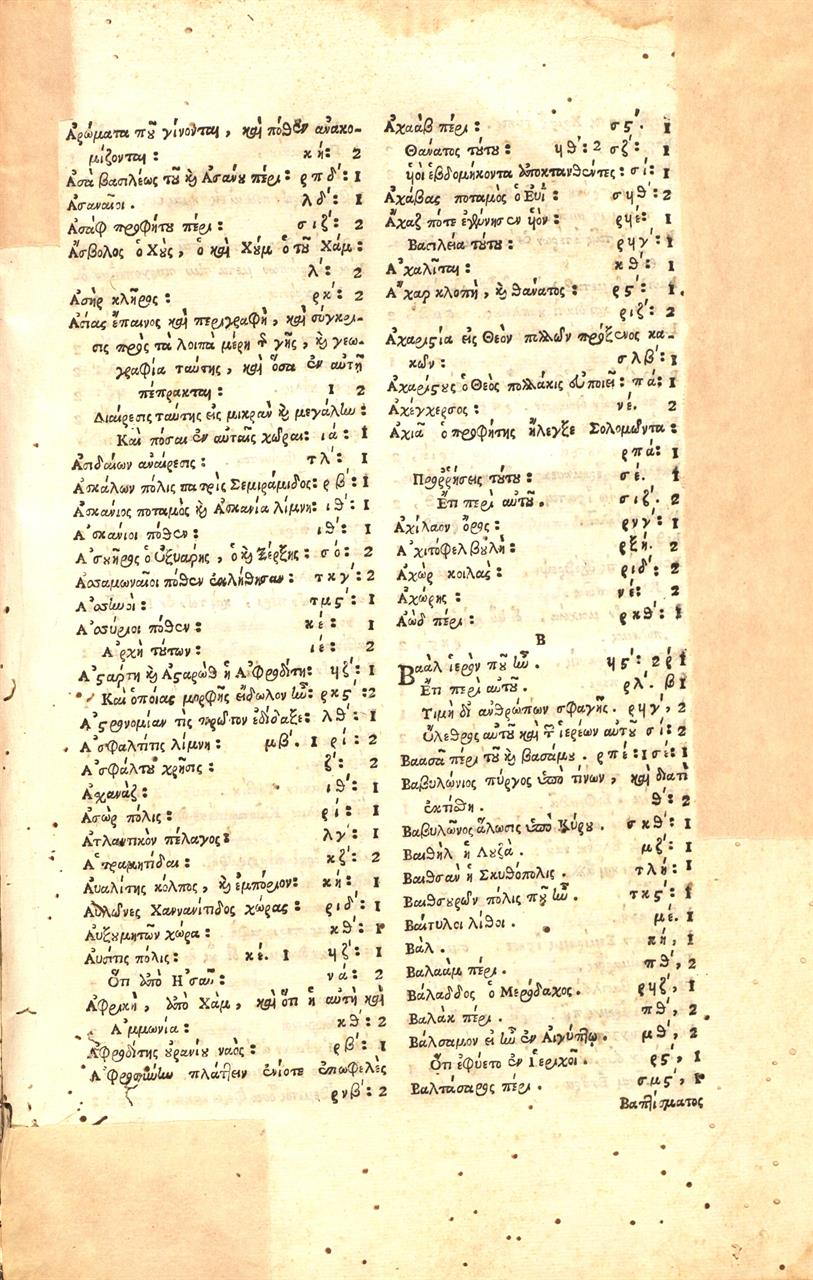 Ἀρώματα ποῦ γίνονται, καὶ πόθεν ἀνακο-
μίζονται: κή: 2
Ἀσὰ βασιλέως τοῦ κ̀ Ἀσάνου πέρι: ρπδ΄: 1
Ἀσαναῖοι. λδ΄: 1
Ἀσὰφ προφήτου πέρι: σιζ΄: 2
Ἄσβολος ὁ Χοὺς, ὁ καὶ Χούμ ὁ τοῦ Χάμ:
λ΄: 2
Ἀσὴρ κλῆρος: ρκ΄: 2
Ἀσίας ἔπαινος καὶ περιγραφὴ, καὶ σύγκρι-
σις πρὸς τὰ λοιπὰ μέρη τ̃ γῆς, κ̀ γεω-
γραφία ταύτης, καὶ ὅσα ἐν αὐτῇ
πέπρακται: 1 2
Διαίρεσις ταύτης εἰς μικρὰν κ̀ μεγάλην:
Καὶ πόσαι ἐν αὐταῖς χῶραι: ιά: 1
Ἀσιδαίων ἀναίρεσις: τλ΄: 1
Ἀσκάλων πόλις πατρὶς Σεμιράμιδος: ρβ΄: 1
Ἀσκάνιος ποταμὸς κ̀ Ἀσκανία λίμνη: ιθ΄: 1
Ἀσκάνιοι πόθεν: ιθ΄: 1
Ἀσουῆρος ὁ Ὀξυάρης, ὁ κ̀ Ξέρξης: σό: 2
Ἀσσαμωναῖοι πόθεν ἐκλήθησαν: τκγ΄: 2
Ἀσσηνοὶ: τμς΄: 1
Ἀσσύριοι πόθεν: κέ: 1
Ἀρχὴ τούτων: ιέ: 2
Ἀστάρτη κ̀ Ἀσταρὼθ ἡ Ἀφροδίτη: ϟζ΄: 1
Καὶ ὁποίας μορφῆς εἴδωλον ἦν: ρκς΄: 2
Ἀστρονομίαν τις πρῶτον ἐδίδαξε: λθ΄: 1
Ἀσφαλτίτις λίμνη: μβ΄. 1 ρί: 2
Ἀσφάλτου χρῆσις: ζ΄: 2
Ἀχανὰζ: ιθ΄: 1
Ἀσὼρ πόλις: ρί: 1
Ἀτλαντικὸν πέλαγος: λγ΄: 1
Ἀτραμητίδαι: κζ΄: 2
Αὐαλίτης κόλπος, κ̀ ἐμπόριον: κή: 1
Αὐλῶνες Χανανίτιδος χώρας: ριδ΄: 1
Αὐξουμητῶν χώρα: κθ΄: 1
Αὐσίτις πόλις: κέ. 1 ϟζ΄: 1
Ὅτι ἀπὸ Ἠσαῦ: νά: 2
Ἀφρικὴ, ἀπὸ Χὰμ, καὶ ὅτι ἡ αὐτὴ καὶ
Ἀμμωνία: κθ΄: 2
Ἀφροδίτης οὐρανίου ναὸς: ρβ΄: 1
Ἀφροσύνην πλάττειν ἐνίοτε ἐπωφελὲς
ρνβ΄: 2
Ἀχαὰβ πέρι: σς΄. 1
Θάνατος τούτου: ϟθ΄: 2 σζ΄: 1
υἱοὶ ἑβδομήκοντα ἀποκτανθέντες: σί: 1
Ἀχάβας ποταμὸς ὁ Εὐΐ: σϟθ΄: 2
Ἄχαζ πότε ἐγέννησεν υἱὸν: ρϟέ: 1
Βασιλεία τούτου: ρϟγ΄: 1
Ἀχαλῖται: κθ΄: 1
Ἄχαρ κλοπὴ, κ̀ θάνατος: ρς΄: 1.
ριζ΄: 2
Ἀχαριστία εἰς Θεὸν πολλῶν πρόξενος κα-
κῶν: σλβ΄: 1
Ἀχαρίστους ὁ Θεὸς πολλάκις εὖ ποιεῖ: πά: 1
Ἀχέγχερσος: νέ. 2
Ἀχιᾶ ὁ προφήτης ἤλεγξε Σολομῶντα:
ρπά: 1
Προῤῥήσεις τούτου: σέ. 1
Ἔτι περὶ αὐτοῦ. σιζ΄. 2
Ἀχίλαον ὄρος: ρνγ΄: 1
Ἀχιτόφελ βουλὴ: ρξή. 2
Ἀχὼρ κοιλὰς: ριδ΄: 2
Ἀχώρης: νέ: 2
Ἀὼδ πέρι: ρκθ΄: 1
Β
Βαὰλ ἱερὸν ποῦ ἦν. ϟς΄: 2 ρί 1
Ἔτι περὶ αὐτοῦ. ρλ΄. β 1
Τιμὴ δι' ἀνθρώπων σφαγῆς. ρϟγ΄, 2
Ὄλεθρος αὐτοῦ καὶ τ̃ ἱερέων αὐτοῦ σί: 2
Βαασᾶ πέρι τοῦ κ̀ βασάμου. ρπέ: 1 σέ: 1
Βαβυλώνιος πύργος ὑπὸ τίνων, καὶ διατί
ἐκτίσθη. θ΄: 2
Βαβυλῶνος ἅλωσις ὑπὸ Κύρου. σκθ΄: 1
Βαιθὴλ ἡ Λουζὰ. μζ΄: 1
Βαιθσὰν ἡ Σκυθόπολις. τλή: 1
Βαιθσουρῶν πόλις ποῦ ἦν. τκς΄: 1
Βαίτυλοι λίθοι. μέ. 1
Βάλ. κή, 1
Βαλαὰμ πέρι. πθ΄, 2
Βάλαδδος ὁ Μερόδαχος. ρϟζ΄, 1
Βαλὰκ πέρι. πθ΄, 2
Βάλσαμον εἰ ἦν ἐν Αἰγύπτῳ. μθ΄, 2
Ὅτι ἐφύετο ἐν Ἱεριχοῖ. ρς΄, 1
Βαλτάσαρος πέρι. σμς΄, 1
Βαπτίσματος